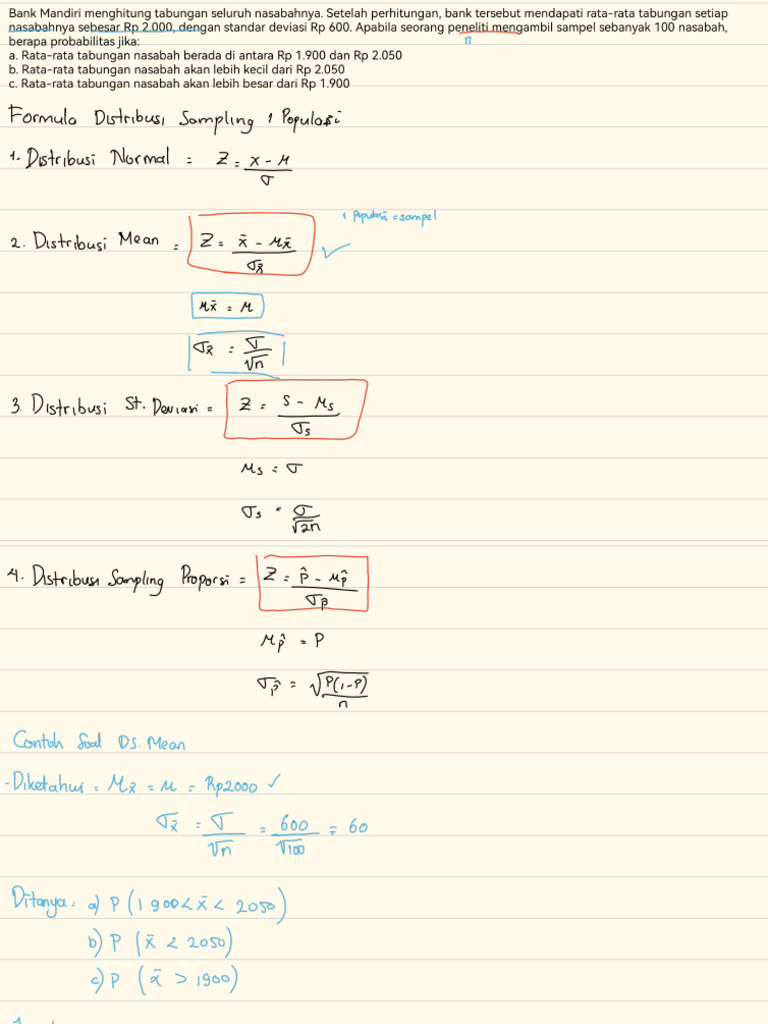 Bank Mandiri menghitung tabungan seluruh nasabahnya. Setelah perhitungan, bank tersebut mendapati rata-rata tabungan setiap
nasabahnya sebesar Rp 2.000, dengan standar deviasi Rp 600. Apabila seorang peneliti mengambil sampel sebanyak 100 nasabah,
berapa probabilitas jika:
n
a. Rata-rata tabungan nasabah berada di antara Rp 1.900 dan Rp 2.050
b. Rata-rata tabungan nasabah akan lebih kecil dari Rp 2.050
c. Rata-rata tabungan nasabah akan lebih besar dari Rp 1.900
Formula Distribusi Sampling 1 Populasi
1. Distribusi Normal = Z = x - μ / σ
1 Populasi = sampel
2. Distribusi Mean = Z = x̄ - μx̄ / σx̄ ✓
μx̄ = μ
σx̄ = σ / √n
3. Distribusi St. Deviasi = Z = s - μs / σs
μs = σ
σs = σ / √2n
4. Distribusi Sampling Proporsi = Z = p̂ - μp̂ / σp̂
μp̂ = P
σp̂ = √P(1-P) / n
Contoh Soal DS. Mean
- Diketahui = μx̄ = μ = Rp2000 ✓
σx̄ = σ / √n = 600 / √100 = 60
Ditanya = a) P (1 900 < x̄ < 2050)
b) P (x̄ < 2050)
c) P (x̄ > 1900)